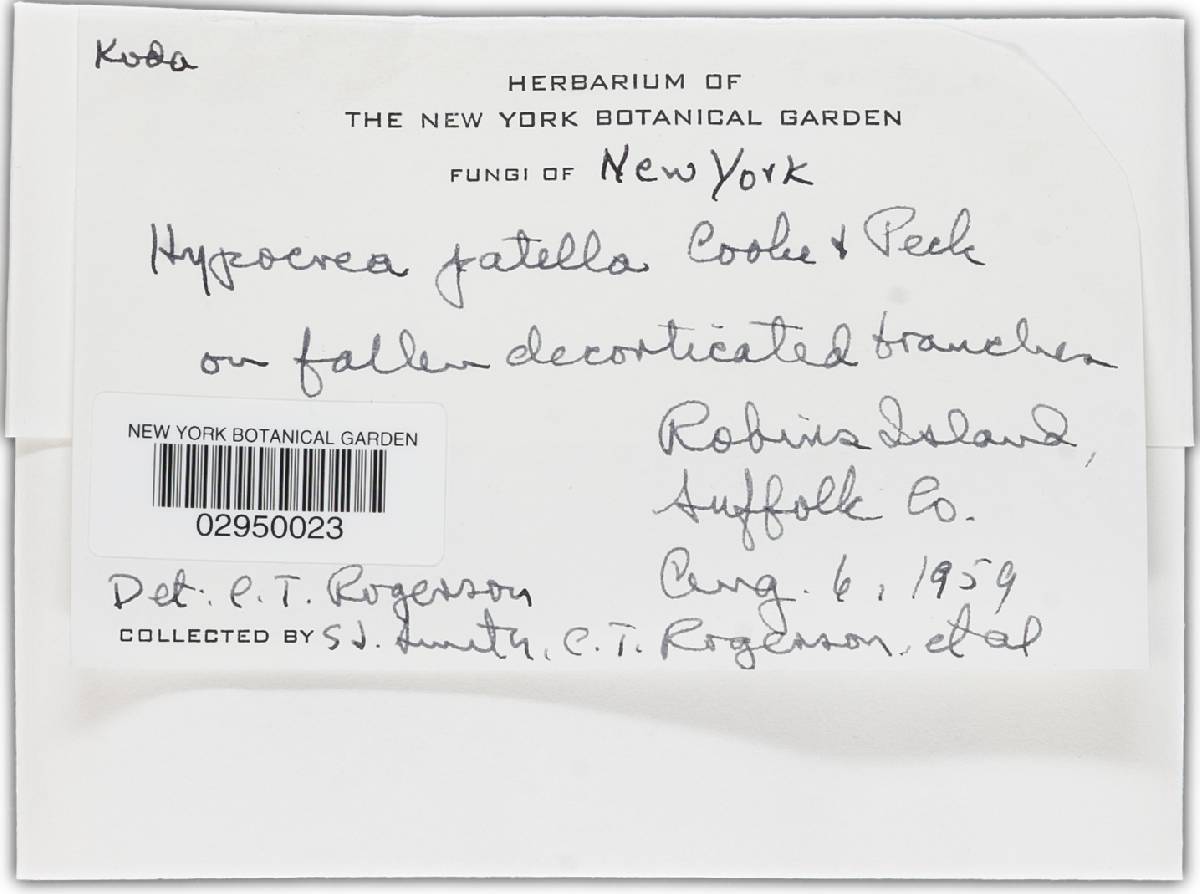 Koda
HERBARIUM OF
THE NEW YORK BOTANICAL GARDEN
FUNGI OF New York
Hypocrea patella Cooke & Peck
on fallen decorticated branches
Robins Island,
Suffolk Co.
Aug. 6, 1959
NEW YORK BOTANICAL GARDEN
02950023
Det. C. T. Rogerson
COLLECTED BY S J. Smith, C. T. Rogerson, et al